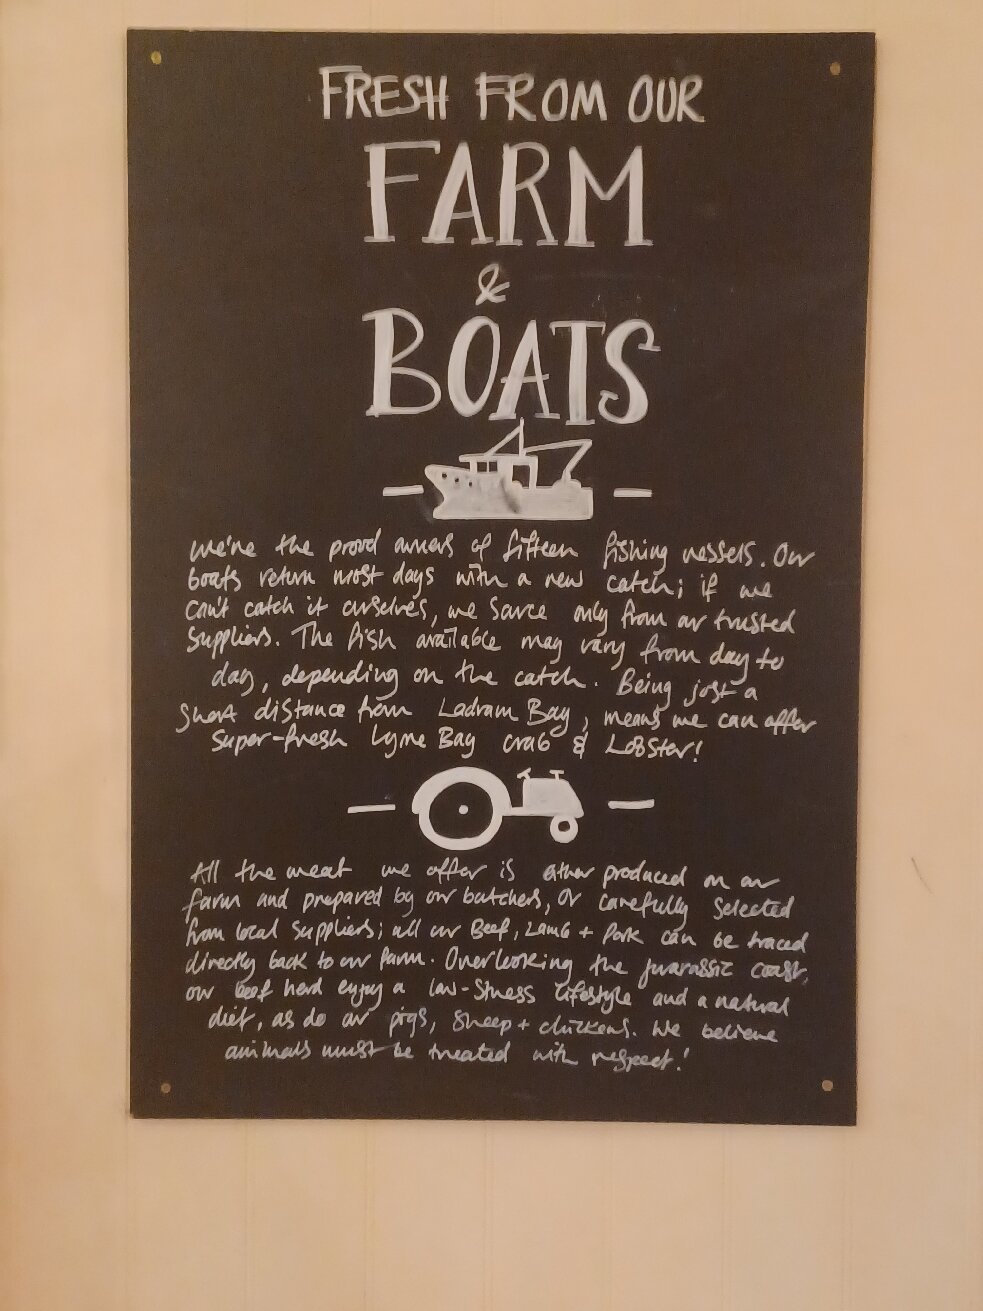 FRESH FROM OUR
FARM
&
BOATS
We're the proud owners of fifteen fishing vessels. Our
boats return most days with a new catch; if we
can't catch it ourselves, we source only from our trusted
suppliers. The fish available may vary from day to
day, depending on the catch. Being just a
short distance from Ladram Bay, means we can offer
super-fresh Lyme Bay crab & Lobster!
All the meat we offer is either produced on our
farm and prepared by our butchers, or carefully selected
from local suppliers; all our Beef, Lamb + Pork can be traced
directly back to our farm. Overlooking the jurassic coast,
our beef herd enjoy a low-stress lifestyle and a natural
diet, as do our pigs, sheep + chickens. We believe
animals must be treated with respect!